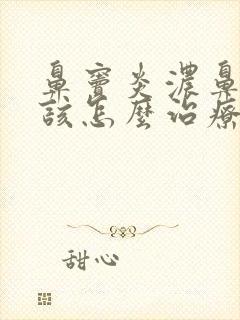 鼻竇炎濃鼻
該怎麼治療
甜心